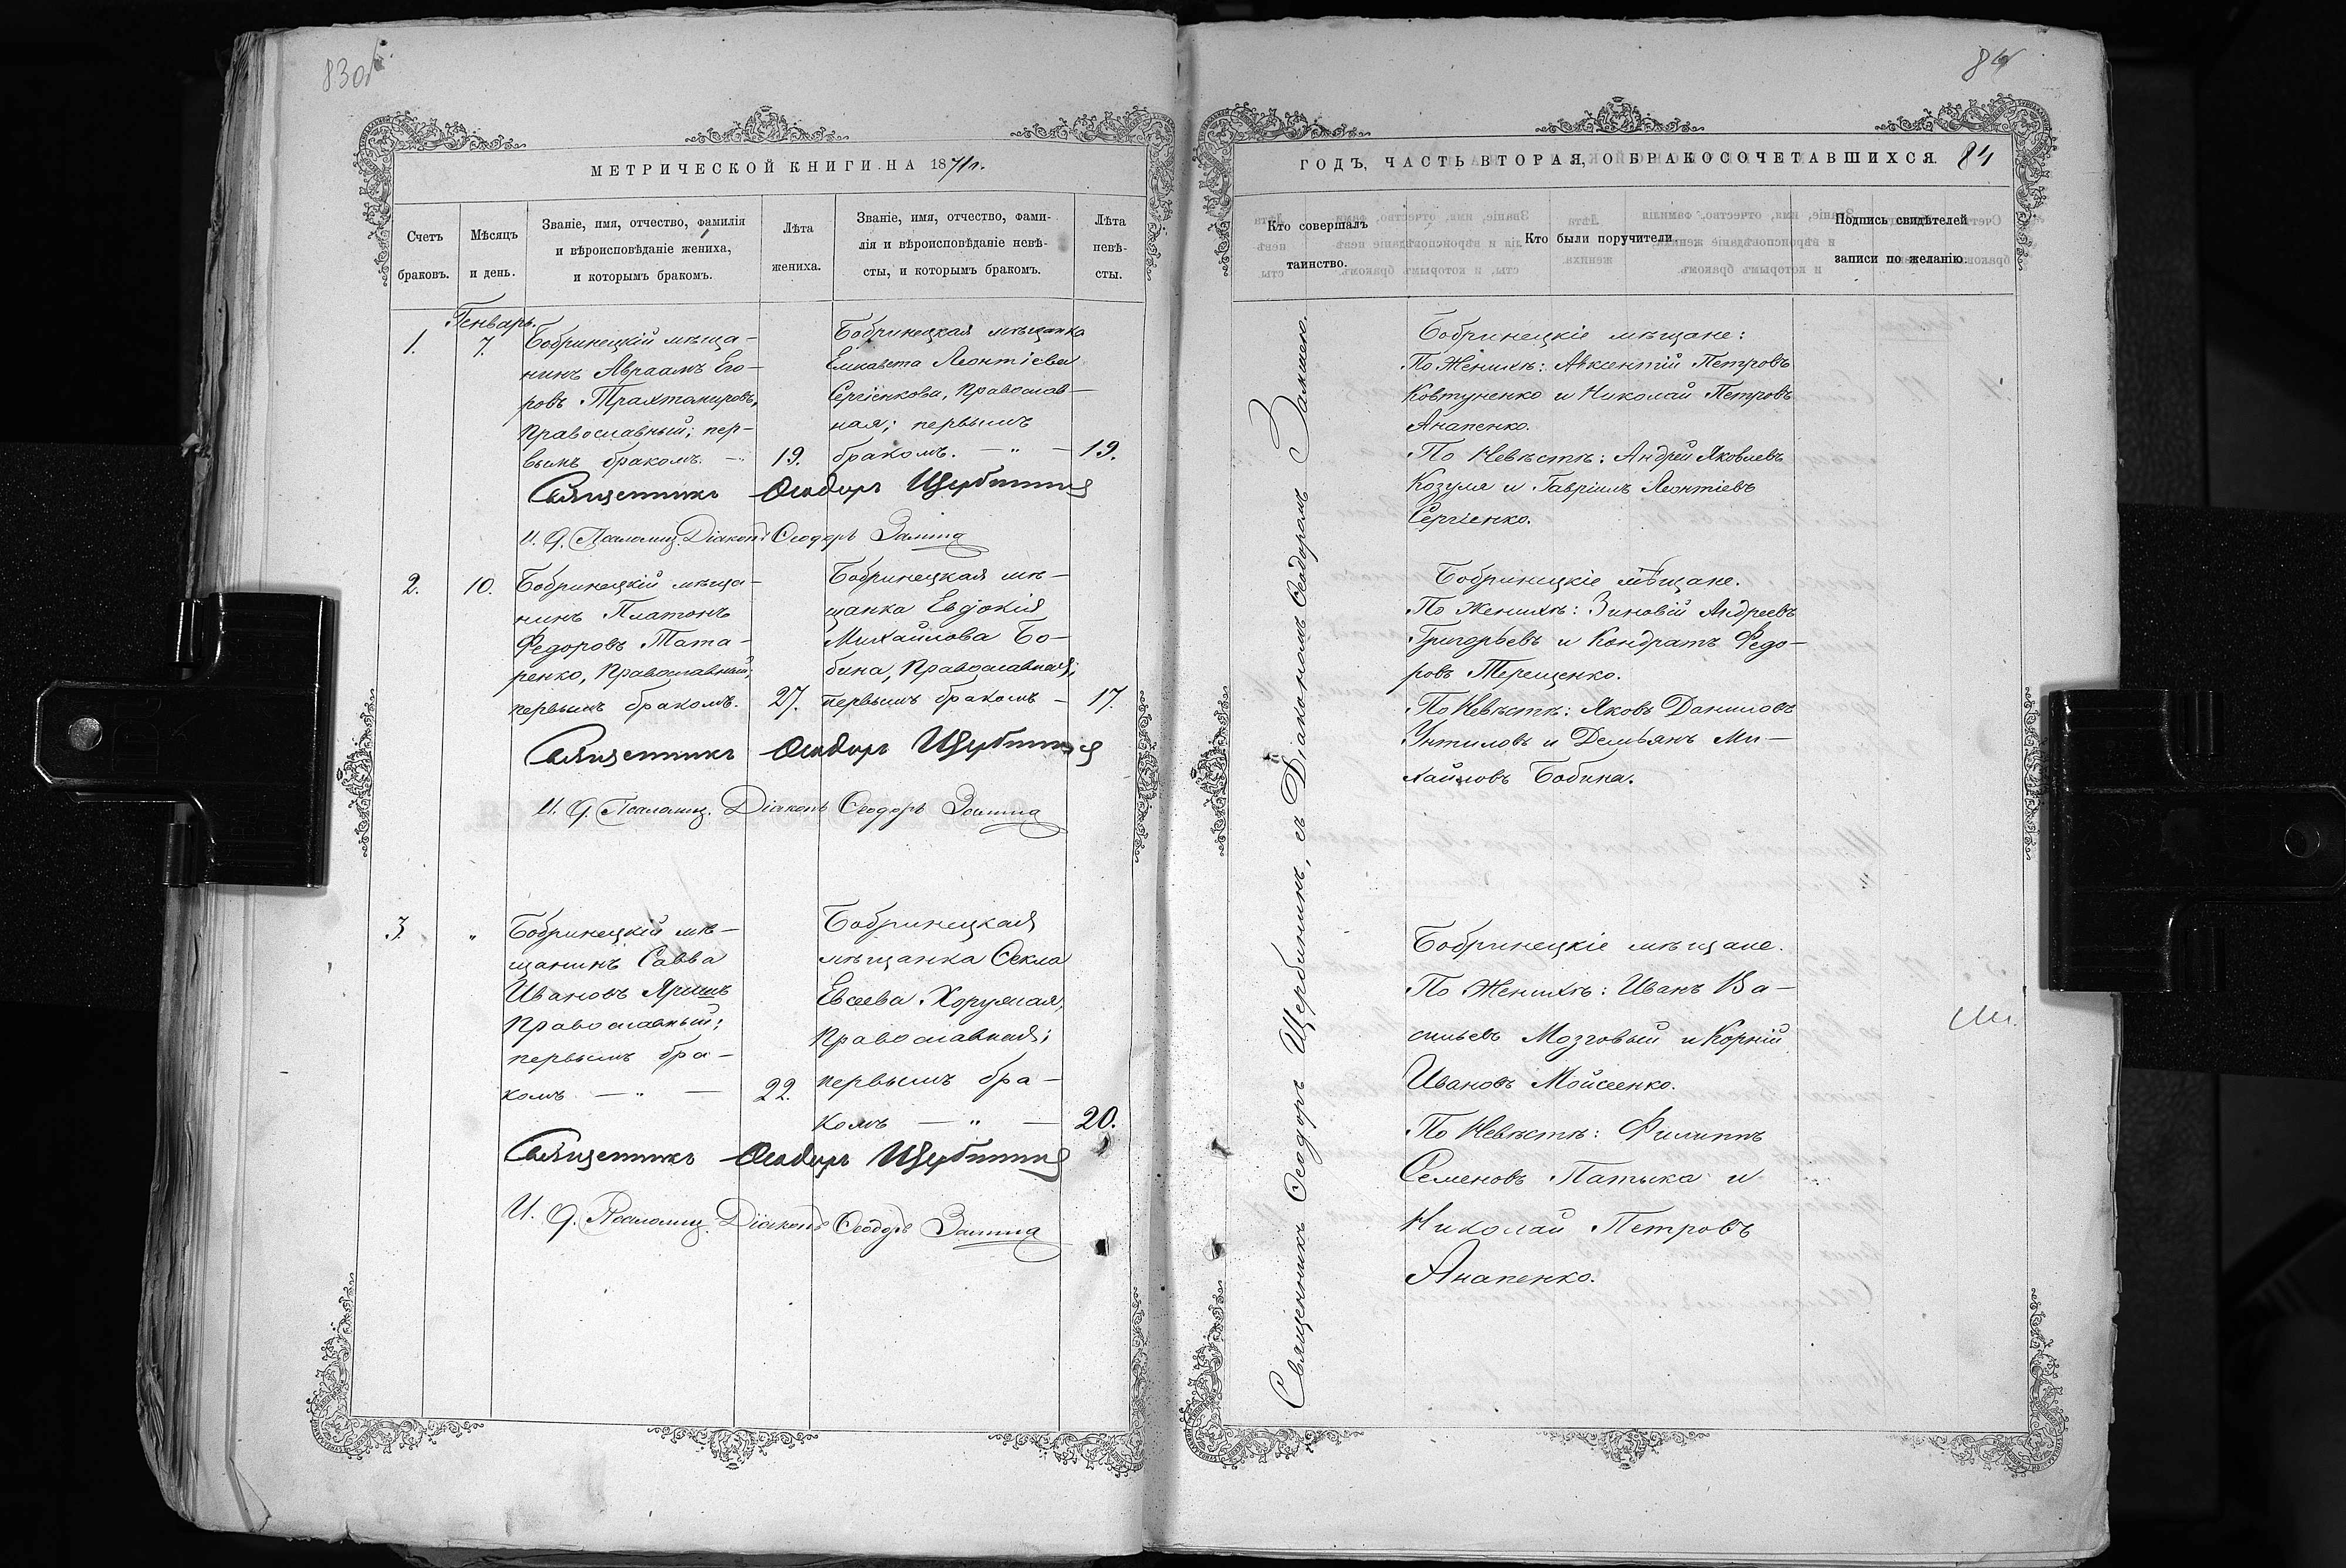 83об
84
МЕТРИЧЕСКОЙ КНИГИ НА 1871 г.
Счетъ
браковъ.
Мѣсяцъ
и день.
Званіе, имя, отчество, фамилія
и вѣроисповѣданіе жениха,
и которымъ бракомъ.
Лѣта
жениха.
Званіе, имя, отчество, фами-
лія и вѣроисповѣданіе невѣ-
сты, и которымъ бракомъ.
Лѣта
невѣ-
сты.
Генварь.
1.
7.
Бобринецкій мѣща-
нинъ Авраамъ Его-
ровъ Трахтомировъ,
Православный; пер-
вымъ бракомъ. — "
19.
Бобринецкая мѣщанка
Елисавета Леонтіева
Сергіенкова, Православ-
ная; первымъ
бракомъ. — " —
19.
Священникъ Ѳеодоръ Щербининъ
И. д. Псаломщ. Діаконъ Ѳеодоръ
2.
10.
Бобринецкій мѣща-
нинъ Платонъ
Федоровъ Тата-
ренко, Православный;
первымъ бракомъ.
27.
Бобринецкая мѣ-
щанка Евдокія
Михайлова Бо-
бина, Православная;
первымъ бракомъ —
17.
Священникъ Ѳеодоръ Щербининъ
И. д. Псаломщ. Діаконъ Ѳеодоръ
3.
"
Бобринецкій мѣ-
щанинъ Савва
Ивановъ Яришъ
Православный;
первымъ бра-
комъ — " —
22.
Бобринецкая
мѣщанка Ѳекла
Евсеева Хорумсая,
Православная;
первымъ бра-
комъ — " —
20.
Священникъ Ѳеодоръ Щербининъ
И. д. Псаломщ. Діаконъ Ѳеодоръ
ГОДЪ, ЧАСТЬ ВТОРАЯ, О БРАКОСОЧЕТАВШИХСЯ. 84
Кто совершалъ
таинство.
Кто были поручители.
Подпись свидѣтелей
записи по желанію.
Священникъ Ѳеодоръ Щербининъ, съ Діакономъ Ѳеодоромъ
Бобринецкіе мѣщане:
По Женихѣ: Авксентій Петровъ
Ковтуненко и Николай Петровъ
Анапенко.
По Невѣстѣ: Андрей Яковлевъ
Козуля и Гавріилъ Леонтіевъ
Сергіенко.
Бобринецкіе мѣщане.
По Женихѣ: Зиновій Андреевъ
Григорьевъ и Кондратъ Федо-
ровъ Терещенко.
По Невѣстѣ: Яковъ Даниловъ
Унтиловъ и Демьянъ Ми-
хайловъ Бобина.
Бобринецкіе мѣщане.
По Женихѣ: Иванъ Ва-
сильевъ Мозговый и Корній
Ивановъ Мойсеенко.
По Невѣстѣ: Филиппъ
Семеновъ Патыка и
Николай Петровъ
Анапенко.